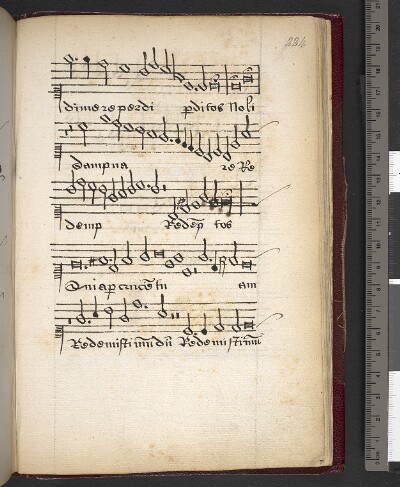 224
dimere perdi pditos Noli
dampna re Re
demp Redēp tos
Qui a p crucē tu am
Redemisti mūdū Redemisti mūū